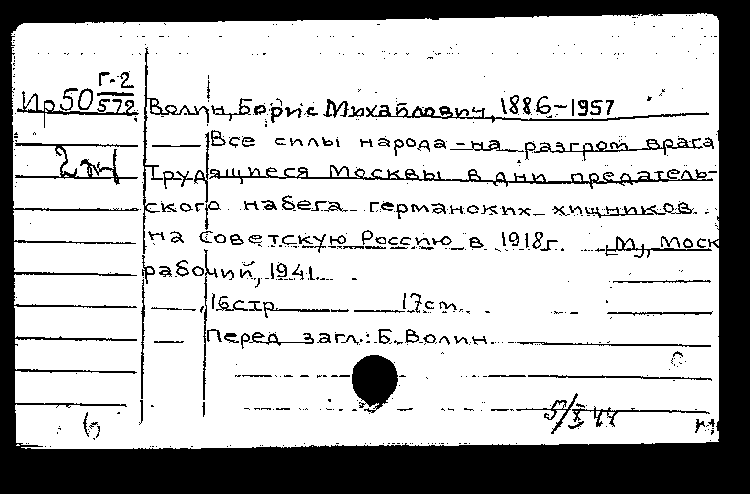 Ир50 Г-2/572 Волин, Борис Михайлович, 1886-1957
Все силы народа-на разгром врага
2 эк
Трудящиеся Москвы в дни предатель-
ского набега германских хищников
на Советскую Россию в 1918г. М., Моск
рабочий, 1941.
16стр 17см.
Перед загл.: Б. Волин.
5/X 44